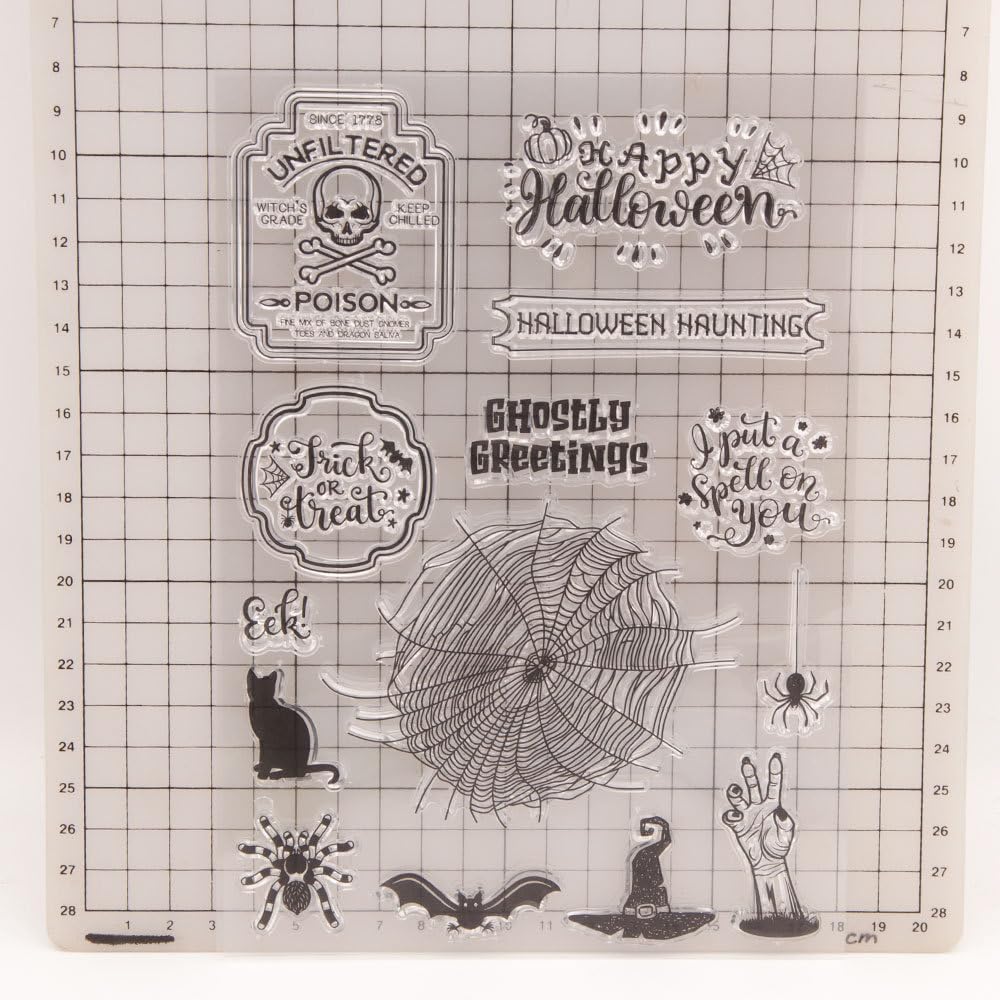 7 7
8 8
9 9
10 10
11 11
12 12
13 13
14 14
15 15
16 16
17 17
18 18
19 19
20 20
21 21
22 22
23 23
24 24
25 25
26 26
27 27
28 28
SINCE 1778
UNFILTERED
WITCH'S GRADE
KEEP CHILLED
POISON
FINE MIX OF BONE DUST GNOMES
TOES AND DRAGON SALIVA
HAPPY
Halloween
HALLOWEEN HAUNTING
Trick
OR
treat
GHOSTLY
GREETINGS
I put a
spell on
you
Eek!
1 2 3 5 7 8 9 10 11 15 17 18 19 20
cm